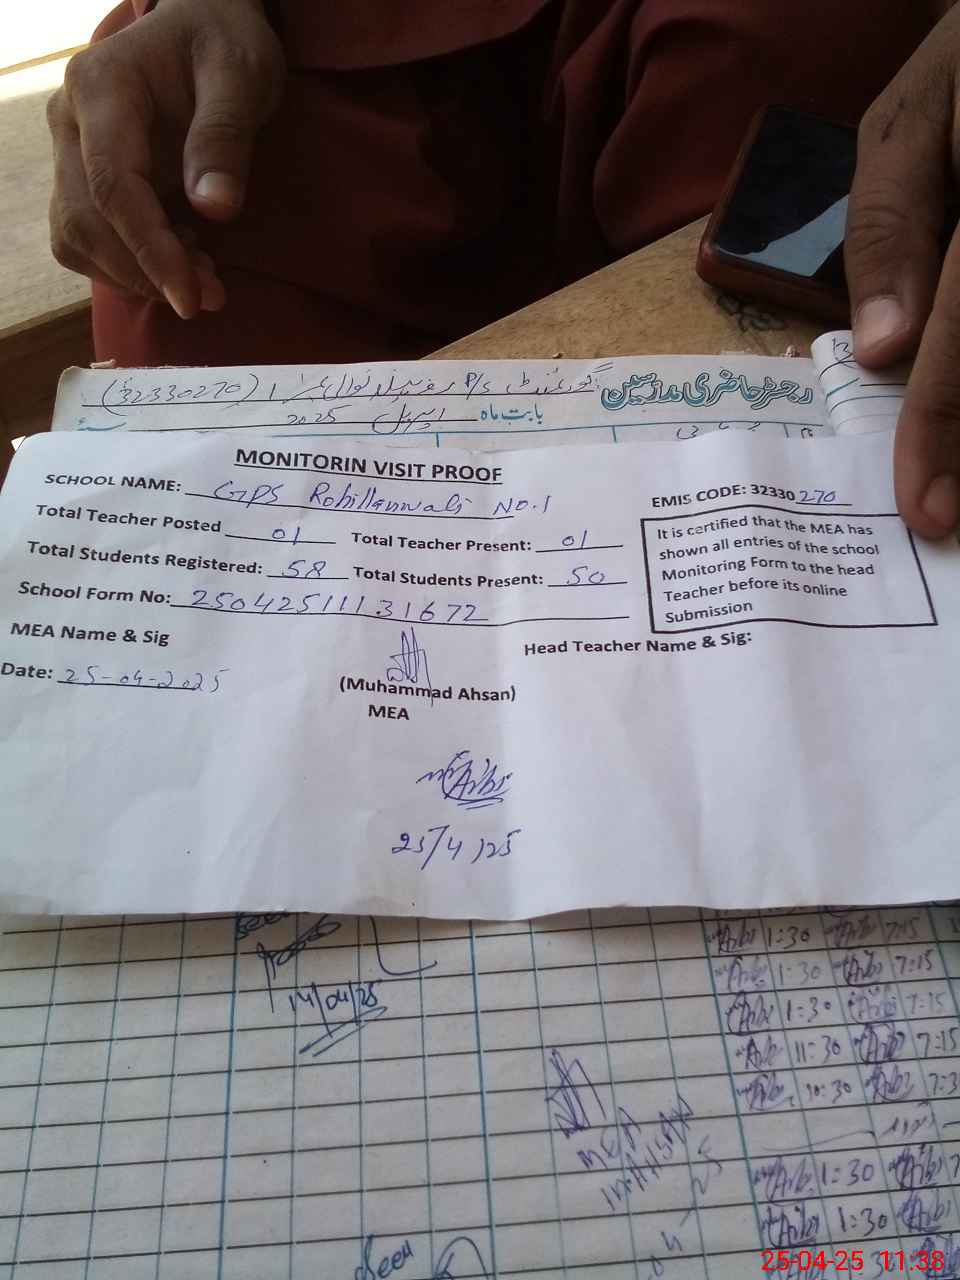 رجسٹر حاضری مدرسین گورنمنٹ P/S نمبر 1 (32330270)
بابت ماہ اپریل 2025
MONITORIN VISIT PROOF
SCHOOL NAME: GPS Rohillanwali NO.1
EMIS CODE: 32330270
Total Teacher Posted 01 Total Teacher Present: 01
Total Students Registered: 58 Total Students Present: 50
School Form No: 25042511131672
It is certified that the MEA has
shown all entries of the school
Monitoring Form to the head
Teacher before its online
Submission
MEA Name & Sig
Head Teacher Name & Sig:
Date: 25-04-2025
(Muhammad Ahsan)
MEA
25/4/25
Seen
14/04/25
1:30 7:15
1:30 7:15
1:30 7:15
11:30 7:15
10:30 7:3
MEA
M.AHSAN
1:30 7
1:30
Seen
30
25-04-25 11:38